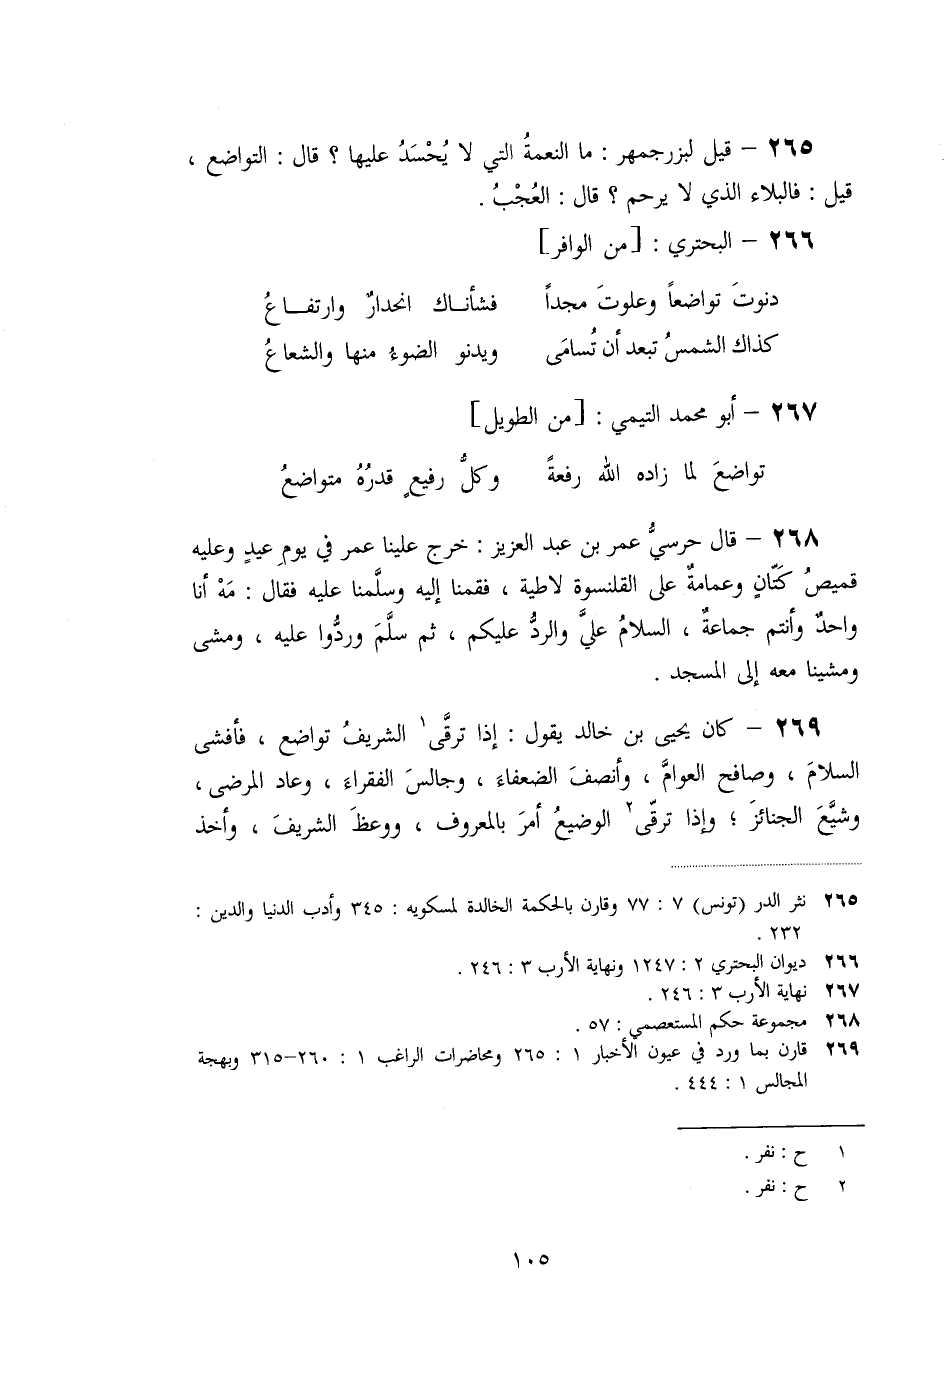 ٢٦٥ – قيل لبزرجمهر : ما النعمةُ التي لا يُحْسَدُ عليها ؟ قال : التواضع ،
قيل : فالبلاء الذي لا يرحم ؟ قال : العُجْبُ .
٢٦٦ – البحتري : [من الوافر]
دنوتَ تواضعاً وعلوتَ مجداً فشأنـاك انحدارٌ وارتفـــاعُ
كذاك الشمسُ تبعد أن تُسامَى ويدنو الضوءُ منها والشعاعُ
٢٦٧ – أبو محمد التيمي : [من الطويل]
تواضعَ لما زاده الله رفعةً وكلُّ رفيعٍ قدرُهُ متواضعُ
٢٦٨ – قال حرسيُّ عمر بن عبد العزيز : خرج علينا عمر في يومِ عيدٍ وعليه
قميصُ كَتّانٍ وعمامةٌ على القلنسوة لاطية ، فقمنا إليه وسلَّمنا عليه فقال : مَهْ أنا
واحدٌ وأنتم جماعةٌ ، السلامُ عليَّ والردُّ عليكم ، ثم سلَّمَ وردُّوا عليه ، ومشى
ومشينا معه إلى المسجد .
٢٦٩ – كان يحيى بن خالد يقول : إذا ترقَّى١ الشريفُ تواضع ، فأفشى
السلامَ ، وصافح العوامَّ ، وأنصفَ الضعفاءَ ، وجالسَ الفقراءَ ، وعاد المرضى ،
وشيَّعَ الجنائزَ ؛ وإذا ترقّى٢ الوضيعُ أمرَ بالمعروف ، ووعظَ الشريفَ ، وأخذ
٢٦٥ نثر الدر (تونس) ٧ : ٧٧ وقارن بالحكمة الخالدة لمسكويه : ٣٤٥ وأدب الدنيا والدين :
٢٣٢ .
٢٦٦ ديوان البحتري ٢ : ١٢٤٧ ونهاية الأرب ٣ : ٢٤٦ .
٢٦٧ نهاية الأرب ٣ : ٢٤٦ .
٢٦٨ مجموعة حكم المستعصمي : ٥٧ .
٢٦٩ قارن بما ورد في عيون الأخبار ١ : ٢٦٥ ومحاضرات الراغب ١ : ٢٦٠–٣١٥ وبهجة
المجالس ١ : ٤٤٤ .
١ ح : نفر .
٢ ح : نفر .
١٠٥